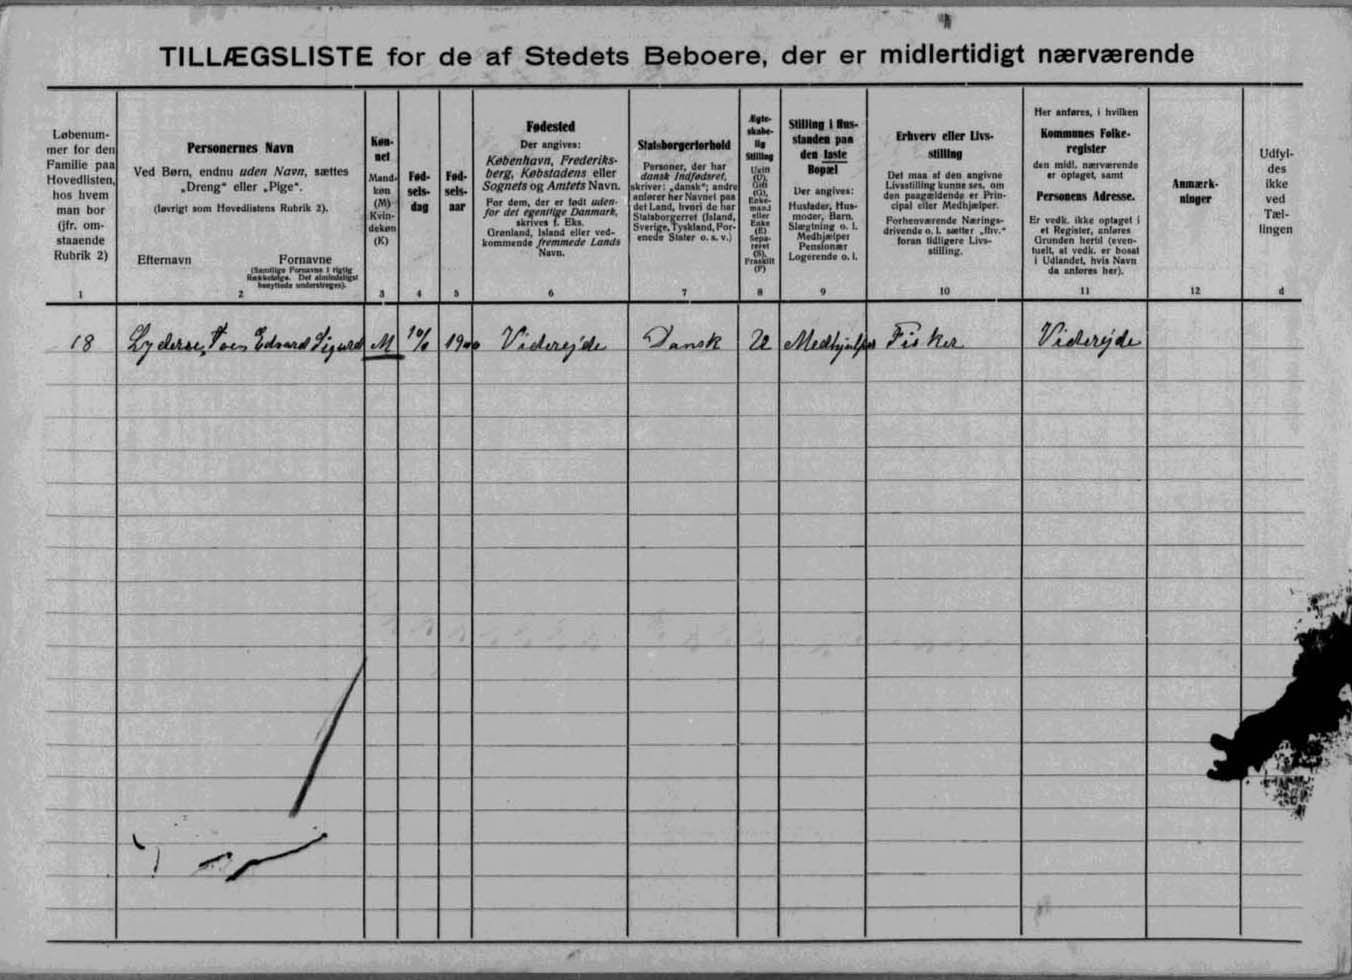 TILLÆGSLISTE for de af Stedets Beboere, der er midlertidigt nærværende
Løbenum-
mer for den
Familie paa
Hovedlisten,
hos hvem
man bor
(jfr. om-
staaende
Rubrik 2)
1
Personernes Navn
Ved Børn, endnu uden Navn, sættes
„Dreng“ eller „Pige“.
(Iøvrigt som Hovedlistens Rubrik 2).
Efternavn
Fornavne
(Samtlige Fornavne i rigtig
Rækkefølge. Det almindeligst
benyttede understreges).
2
Køn-
net
Mand-
køn
(M)
Kvin-
dekøn
(K)
3
Fød-
sels-
dag
4
Fød-
sels-
aar
5
Fødested
Der angives:
København, Frederiks-
berg, Købstadens eller
Sognets og Amtets Navn.
For dem, der er født uden-
for det egentlige Danmark,
skrives f. Eks.
Grønland, Island eller ved-
kommende fremmede Lands
Navn.
6
Statsborgerforhold
Personer, der har
dansk Indfødsret,
skriver: „dansk“; andre
anfører her Navnet paa
det Land, hvori de har
Statsborgerret (Island,
Sverige, Tyskland, For-
enede Stater o. s. v.)
7
Ægte-
skabe-
lig
Stilling
Ugift
(U),
Gift
(G),
Enke-
mand
eller
Enke
(E)
Sepa-
reret
(S),
Fraskilt
(F)
8
Stilling i Hus-
standen paa
den faste
Bopæl
Der angives:
Husfader, Hus-
moder, Barn,
Slægtning o. l.
Medhjælper
Pensionær
Logerende o. l.
9
Erhverv eller Livs-
stilling
Det maa af den angivne
Livsstilling kunne ses, om
den paagældende er Prin-
cipal eller Medhjælper.
Forhenværende Nærings-
drivende o. l. sætter „fhv.“
foran tidligere Livs-
stilling.
10
Her anføres, i hvilken
Kommunes Folke-
register
den midl. nærværende
er optaget, samt
Personens Adresse.
Er vedk. ikke optaget i
et Register, anføres
Grunden hertil (even-
tuelt, at vedk. er bosat
i Udlandet, hvis Navn
da anføres her).
11
Anmærk-
ninger
12
Udfyl-
des
ikke
ved
Tæl-
lingen
d
18 Edvard Sigurd M 1900 Viderejde Dansk U Medhjælper Fisker Viderejde